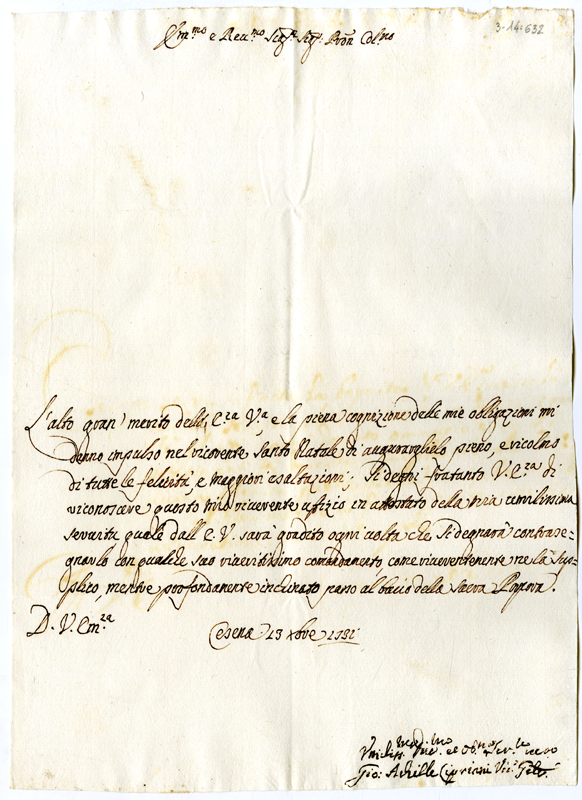 3-14-632
Em.mo e Reu.mo Sig.re Sig.r Pron Col.mo
L'alto gran merito dell' E.za V.a e la piena cognizione delle mie obligazioni mi
danno impulso nel ricorrente Santo Natale di augurarglielo pieno, e ricolmo
di tutte le felicità, e maggiori esaltazioni. Si degni fratanto V. E.za di
riconoscere questo mio riverente ufizio in attestato della mia umilissima
servitù quale dall' E. V. sarà gradito ogni volta che si degnarà contrase=
gnarlo con qualche suo riveritissimo comandamento, come riverentemente ne la sup=
plico, mentre profondamente inchinato passo al bacio della Sacra Porpora.
D. V. Em.za
Cesena 23 xbre 1731
Umiliss. et Ob.mo Ser.re
Gio: Achille Cipriani